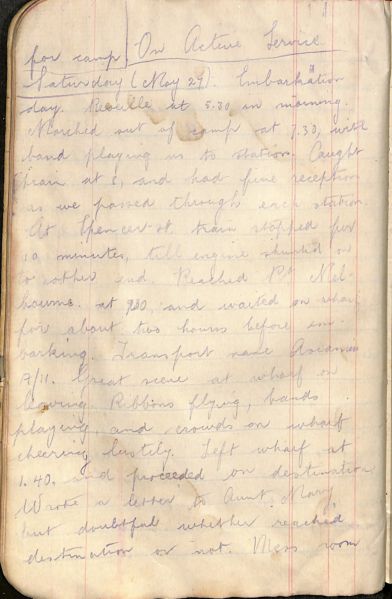 for camp On Active Service
Saturday (May 29). Embarkation
day. Reveille at 5.30 in morning.
Marched out of camp at 7.30, with
band playing us to station. Caught
train at 8, and had fine reception
as we passed through each station.
At Spencer st. train stopped for
10 minutes, till engine shunted on
to other end. Reached Pt Mel-
bourne at 9.30, and waited on wharf
for about two hours before em-
barking. Transport name Ascanius
A/11. Great scene at wharf on
leaving. Ribbons flying, bands
playing, and crowds on wharf
cheering lustily. Left wharf at
1.40, and proceeded on destination
Wrote a letter to Aunt Mary,
but doubtful whether reached
destination or not. Mess room